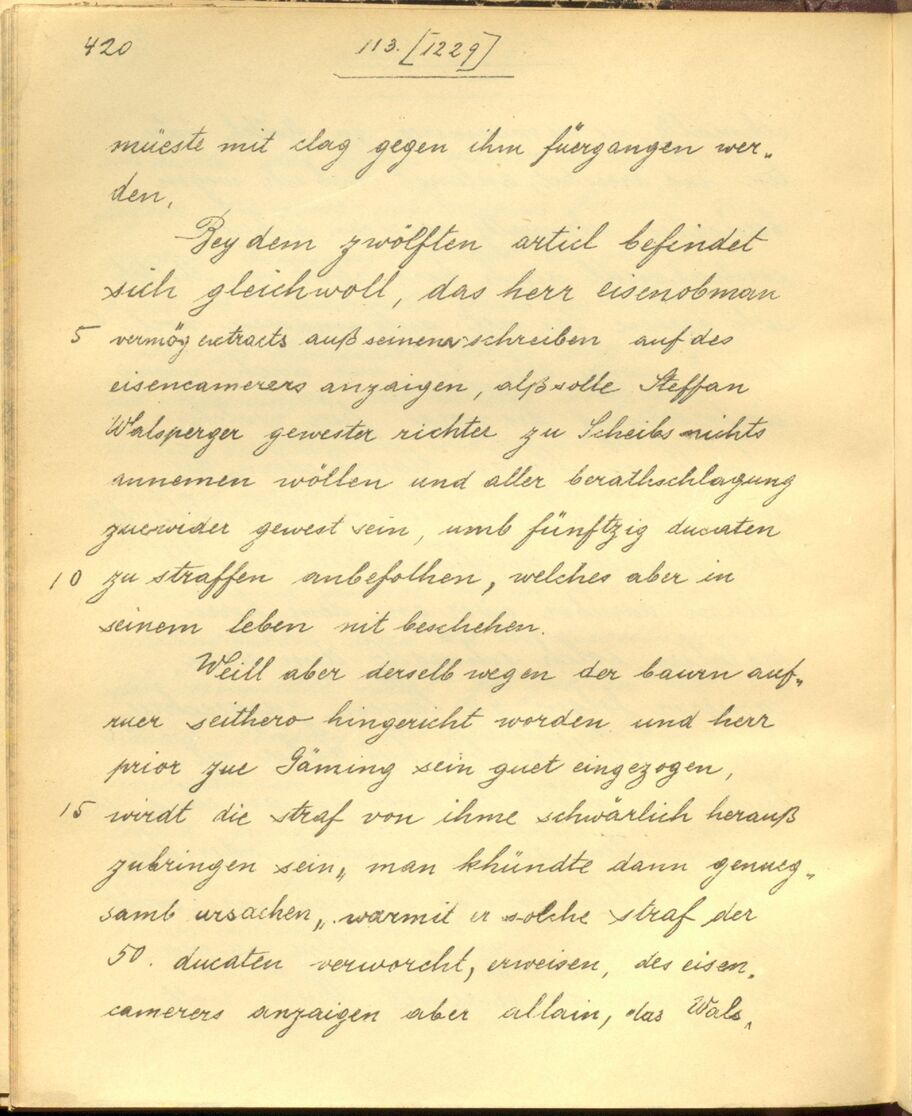 420 113. [1229]
müeste mit clag gegen ihm füergangen wer„
den.
Bey dem zwölften articl befindet
sich gleichwoll, das herr eisenobman
5 vermög extracts auß seinem schreiben auf des
eisencamerers anzaigen, alß solle Steffan
Walsperger gewester richter zu Scheibs nichts
annemen wöllen und aller berathschlagung
zuewider gewest sein, umb fünftzig ducaten
10 zu straffen anbefolhen, welches aber in
seinem leben nit beschehen.
Weill aber derselb wegen der baurn auf„
ruer seithero hingericht worden und herr
prior zue Gäming sein guet eingezogen,
15 wirdt die straf von ihme schwärlich herauß
zubringen sein, man khündte dann genueg„
samb ursachen, warmit er solche straf der
50. ducaten verworcht, erweisen, des eisen„
camerers anzaigen aber allain, das Wals„